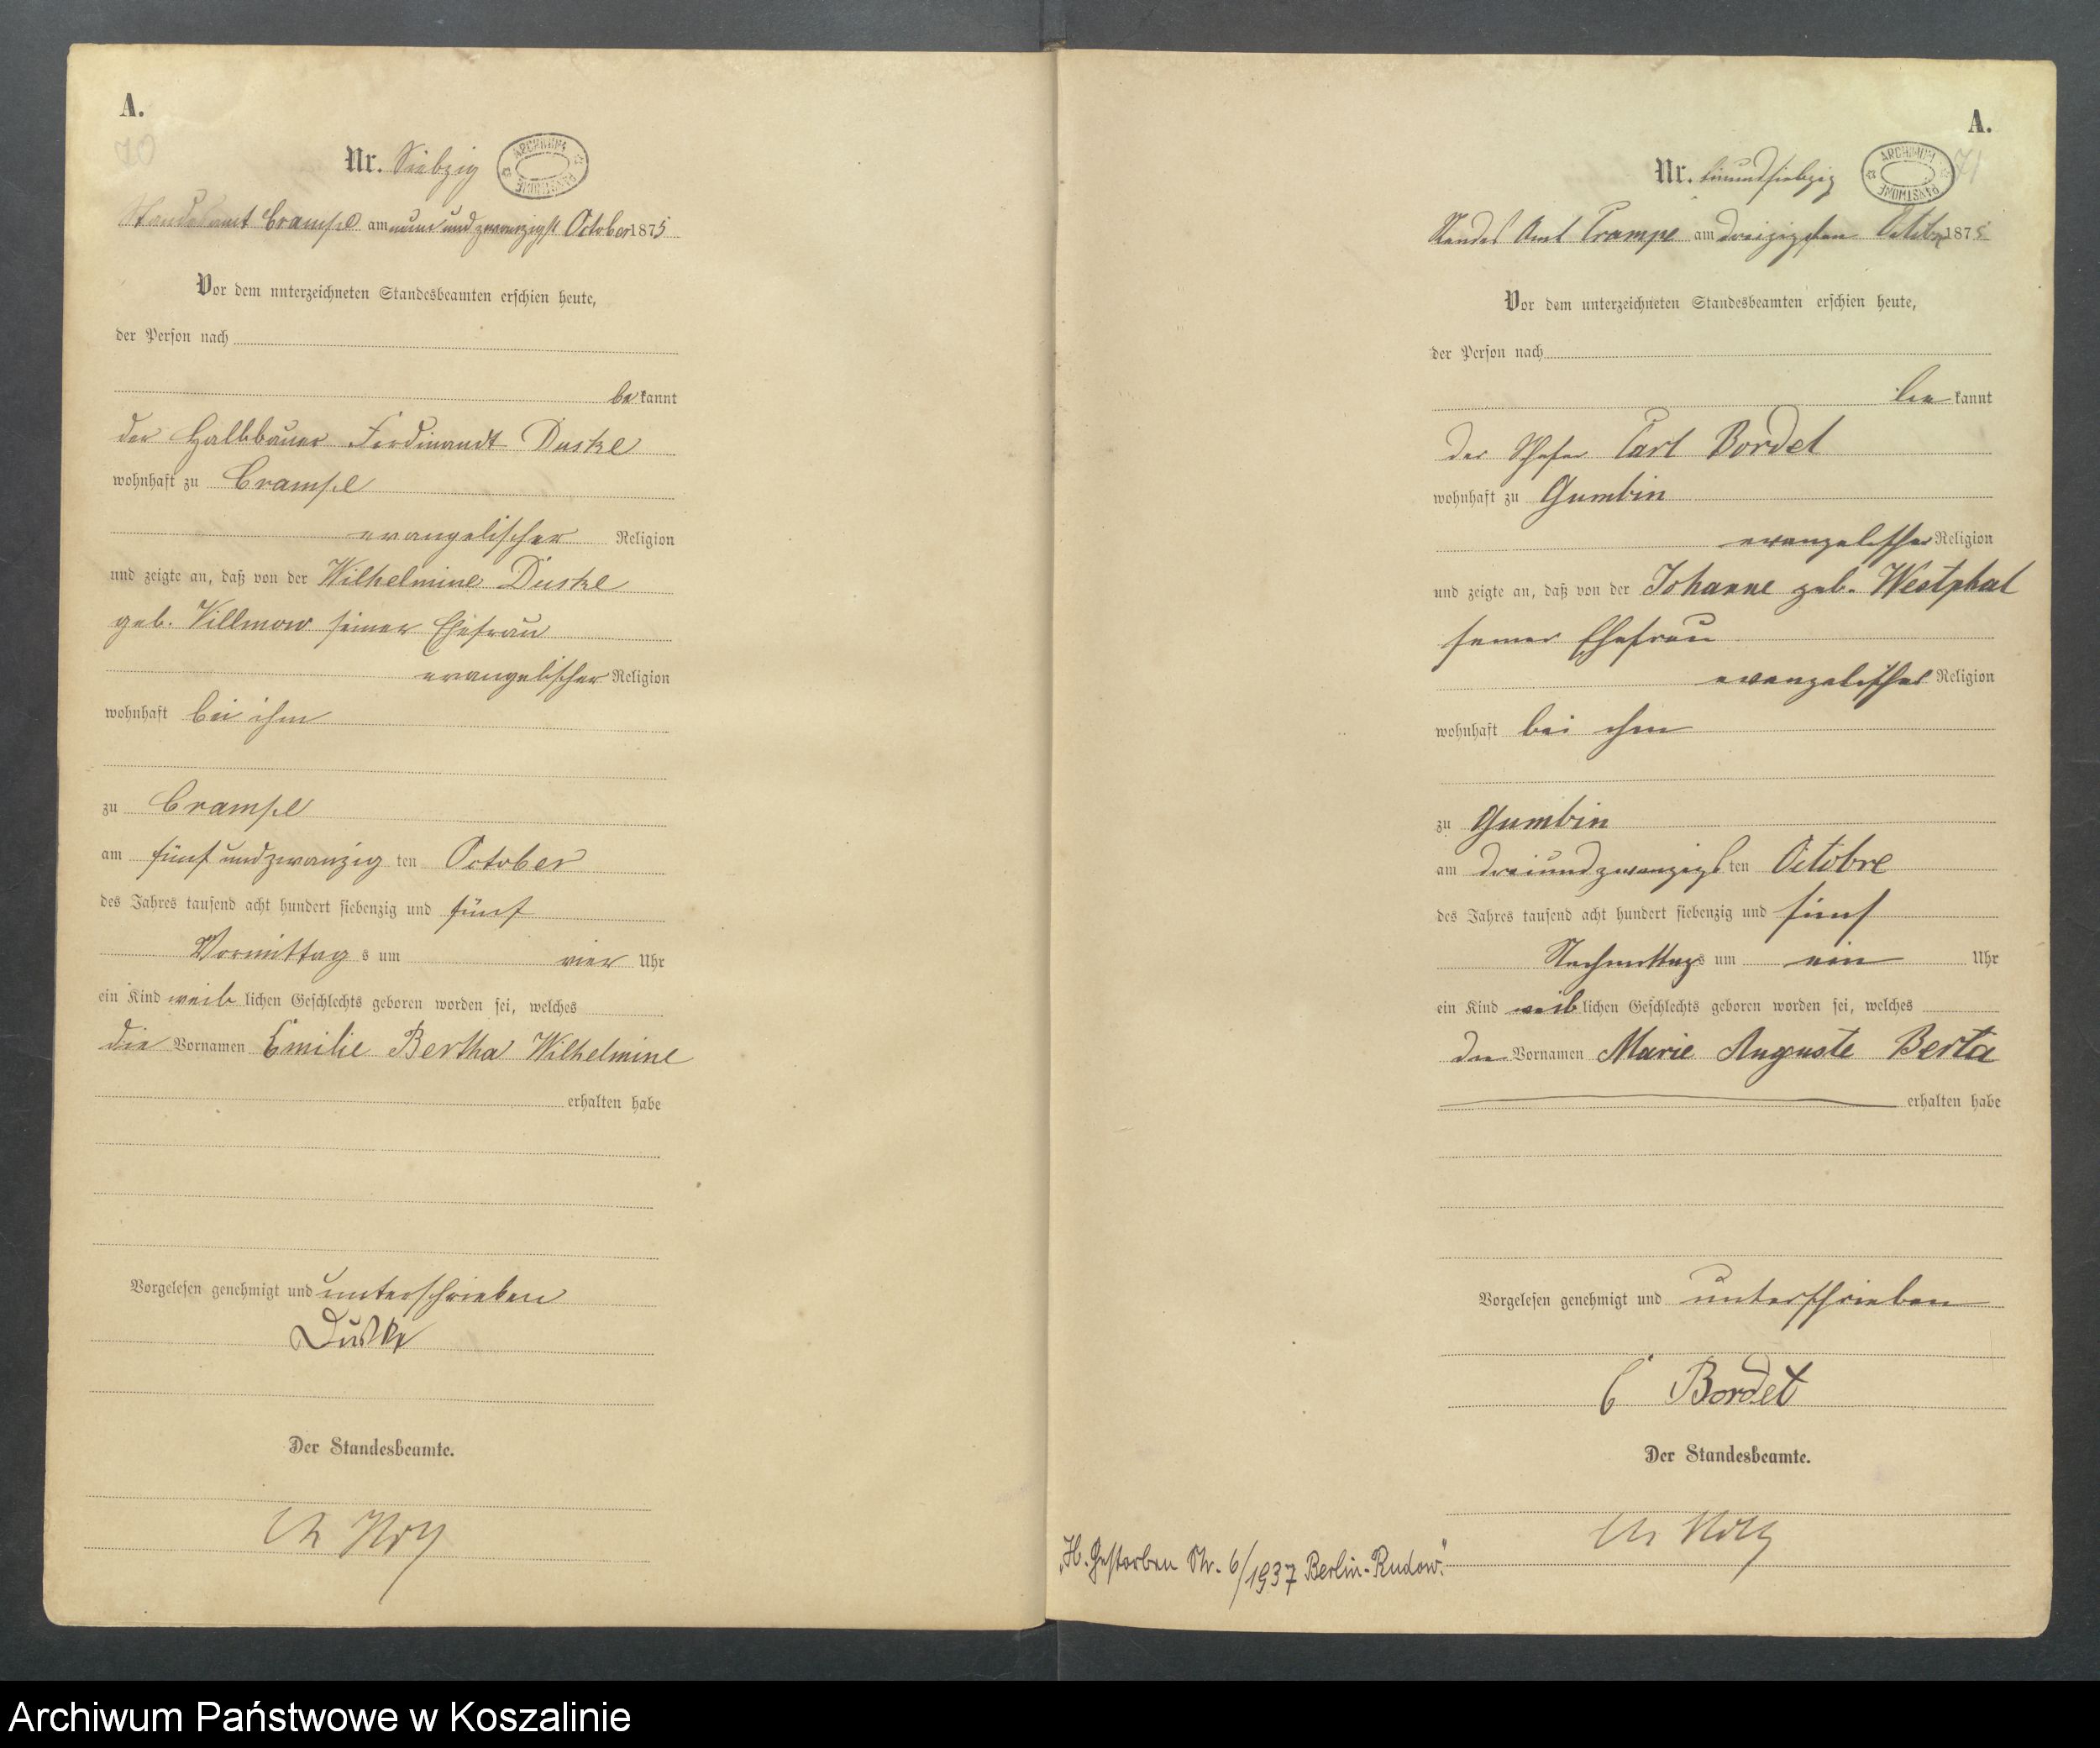 A.
Nr. Siebzig
ARCHIWUM PAŃSTWOWE
Standesamt Crampe am neun und zwanzigst October 1875
Vor dem unterzeichneten Standesbeamten erschien heute,
der Person nach
bekannt
der Halbbauer Ferdinandt Duske
wohnhaft zu Crampe
evangelischer Religion
und zeigte an, daß von der Wilhelmine Duske
geb. Villmow seiner Ehefrau
evangelischer Religion
wohnhaft bei ihm
zu Crampe
am fünf und zwanzig ten October
des Jahres tausend acht hundert siebenzig und fünf
Vormittag s um vier Uhr
ein Kind weib lichen Geschlechts geboren worden sei, welches
die Vornamen Emilie Bertha Wilhelmine
erhalten habe
Vorgelesen genehmigt und unterschrieben
Duske
Der Standesbeamte.
A.
71
Nr. einundsiebzig
ARCHIWUM PAŃSTWOWE
Standes Amt Crampe am dreizigsten Octobr 1875
Vor dem unterzeichneten Standesbeamten erschien heute,
der Person nach
bekannt
der Schäfer Carl Bordet
wohnhaft zu Gumbin
evangelischer Religion
und zeigte an, daß von der Johanne geb. Westphal
seiner Ehefrau
evangelischer Religion
wohnhaft bei ihm
zu Gumbin
am dreiundzwanzigs ten Octobre
des Jahres tausend acht hundert siebenzig und fünf
Nachmittags um ein Uhr
ein Kind weiblichen Geschlechts geboren worden sei, welches
die Vornamen Marie Auguste Berta
erhalten habe
Vorgelesen genehmigt und unterschrieben
C Bordet
Der Standesbeamte.
„H. Gestorben Nr. 6/1937 Berlin-Rudow."
Archiwum Państwowe w Koszalinie